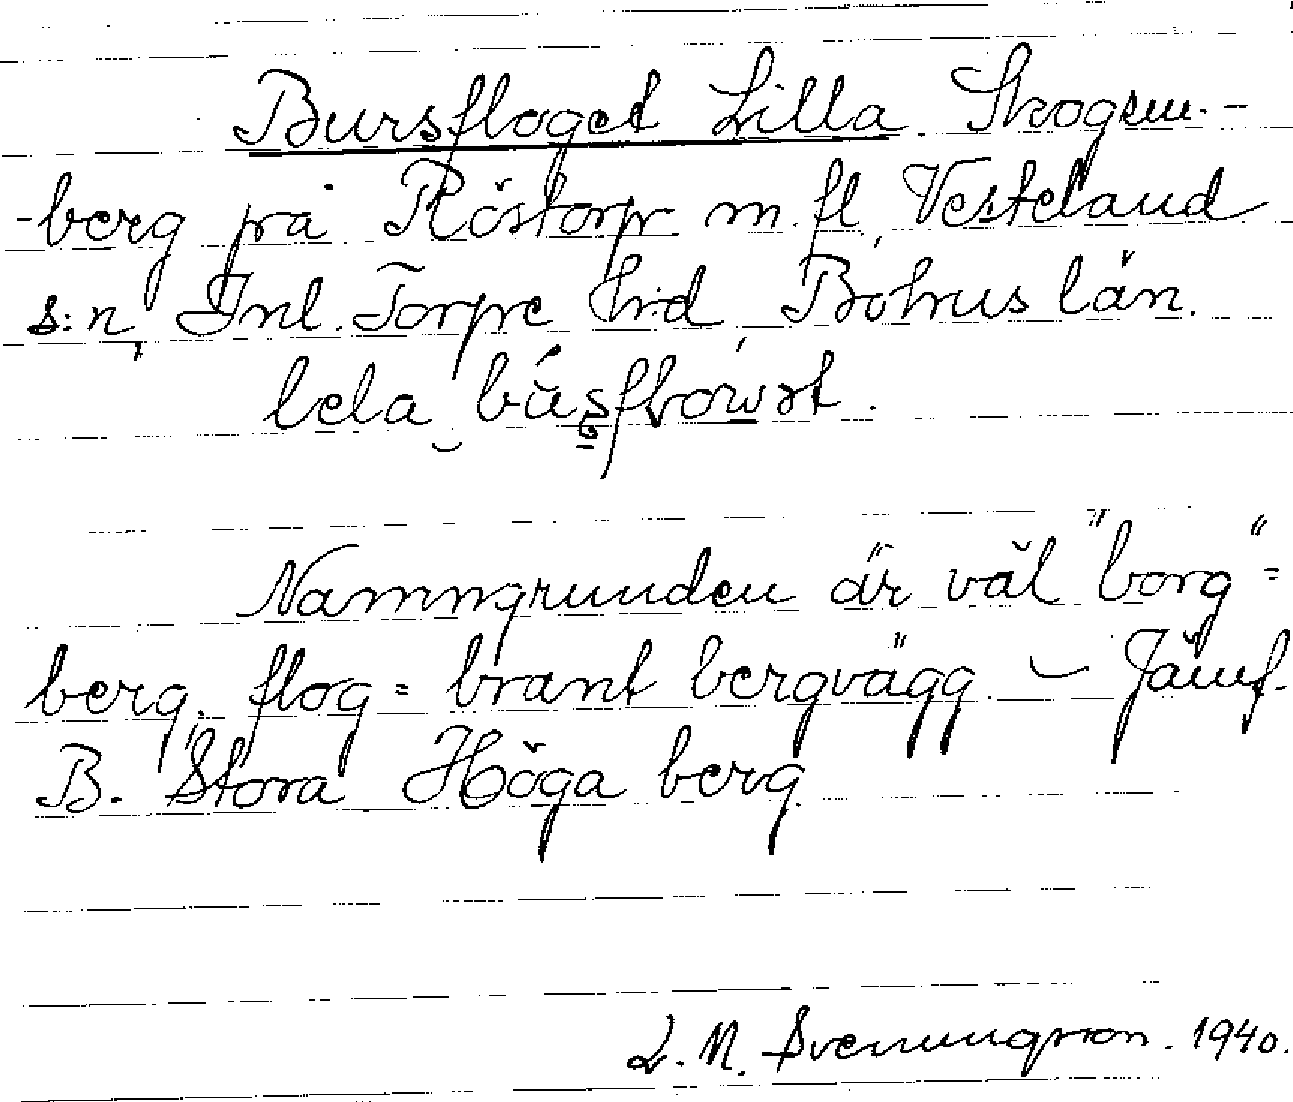 Bursfloget Lilla. Skogsm.-
-berg på Röstorp m. fl, Vesteland
s:n, Inl. Torpe hrd Bohus län.
lela búsflowət.
Namngrunden är väl "borg"=
berg; flog = brant bergvägg. - Jämf.
B. Stora Höga berg
L. M. Svenungsson. 1940.